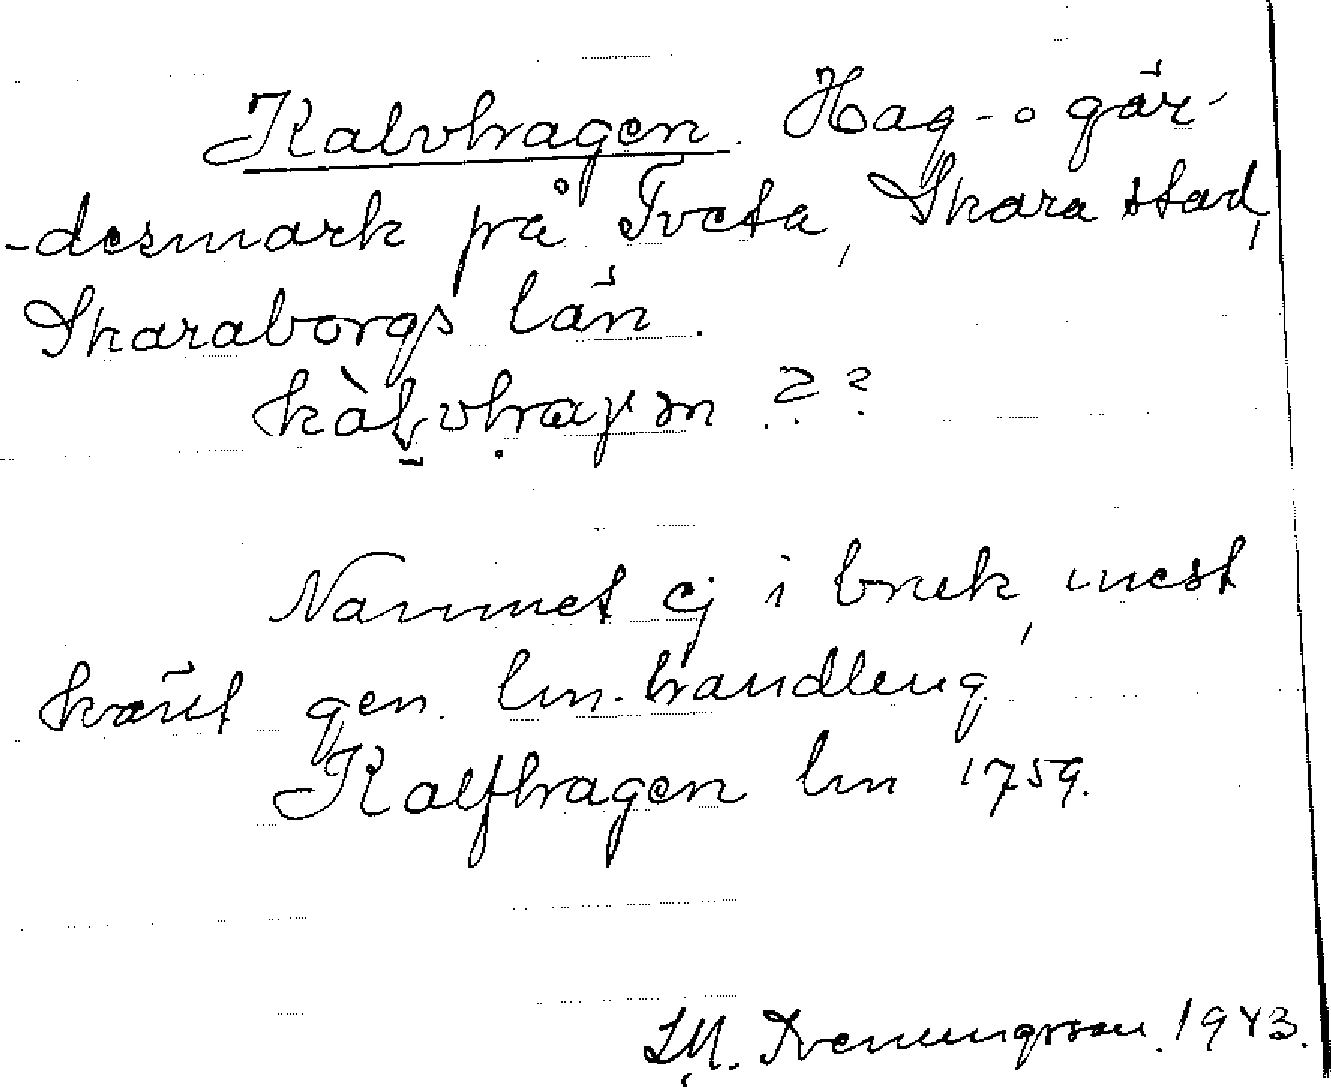 Kalvhagen. Hag- o gär-
-desmark på Tveta, Skara stad,
Skaraborgs län.
kàḷvḥaγən ??
Namnet ej i bruk, mest
känt gen. lm.-handling
Kalfhagen lm 1759.
Svenungsson. 1943.